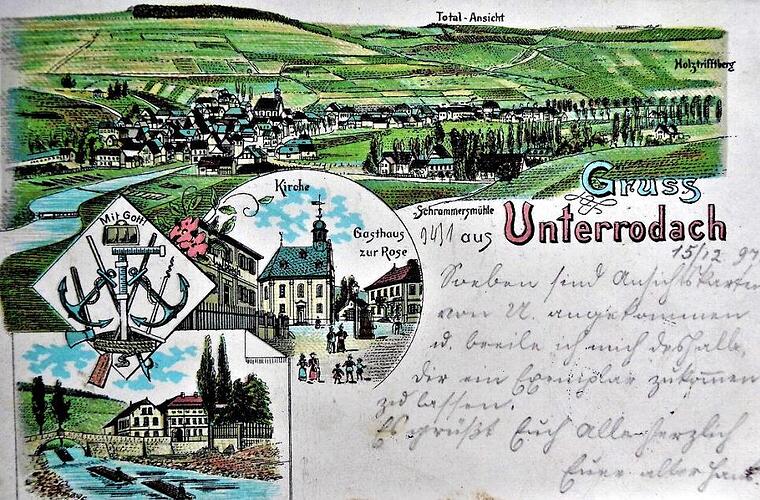 Total-Ansicht
Holztriftberg
Schrammersmühle
Gruss
aus
Unterrodach
Kirche
Gasthaus
zur Rose
Mit Gott!
15/12 97
Soeben sind Ansichtskarten
von U. angekommen
u. beeile ich mich deshalb
Dir ein Exemplar zukommen
zu lassen.
Es grüßt Euch alle herzlich
Euer alter